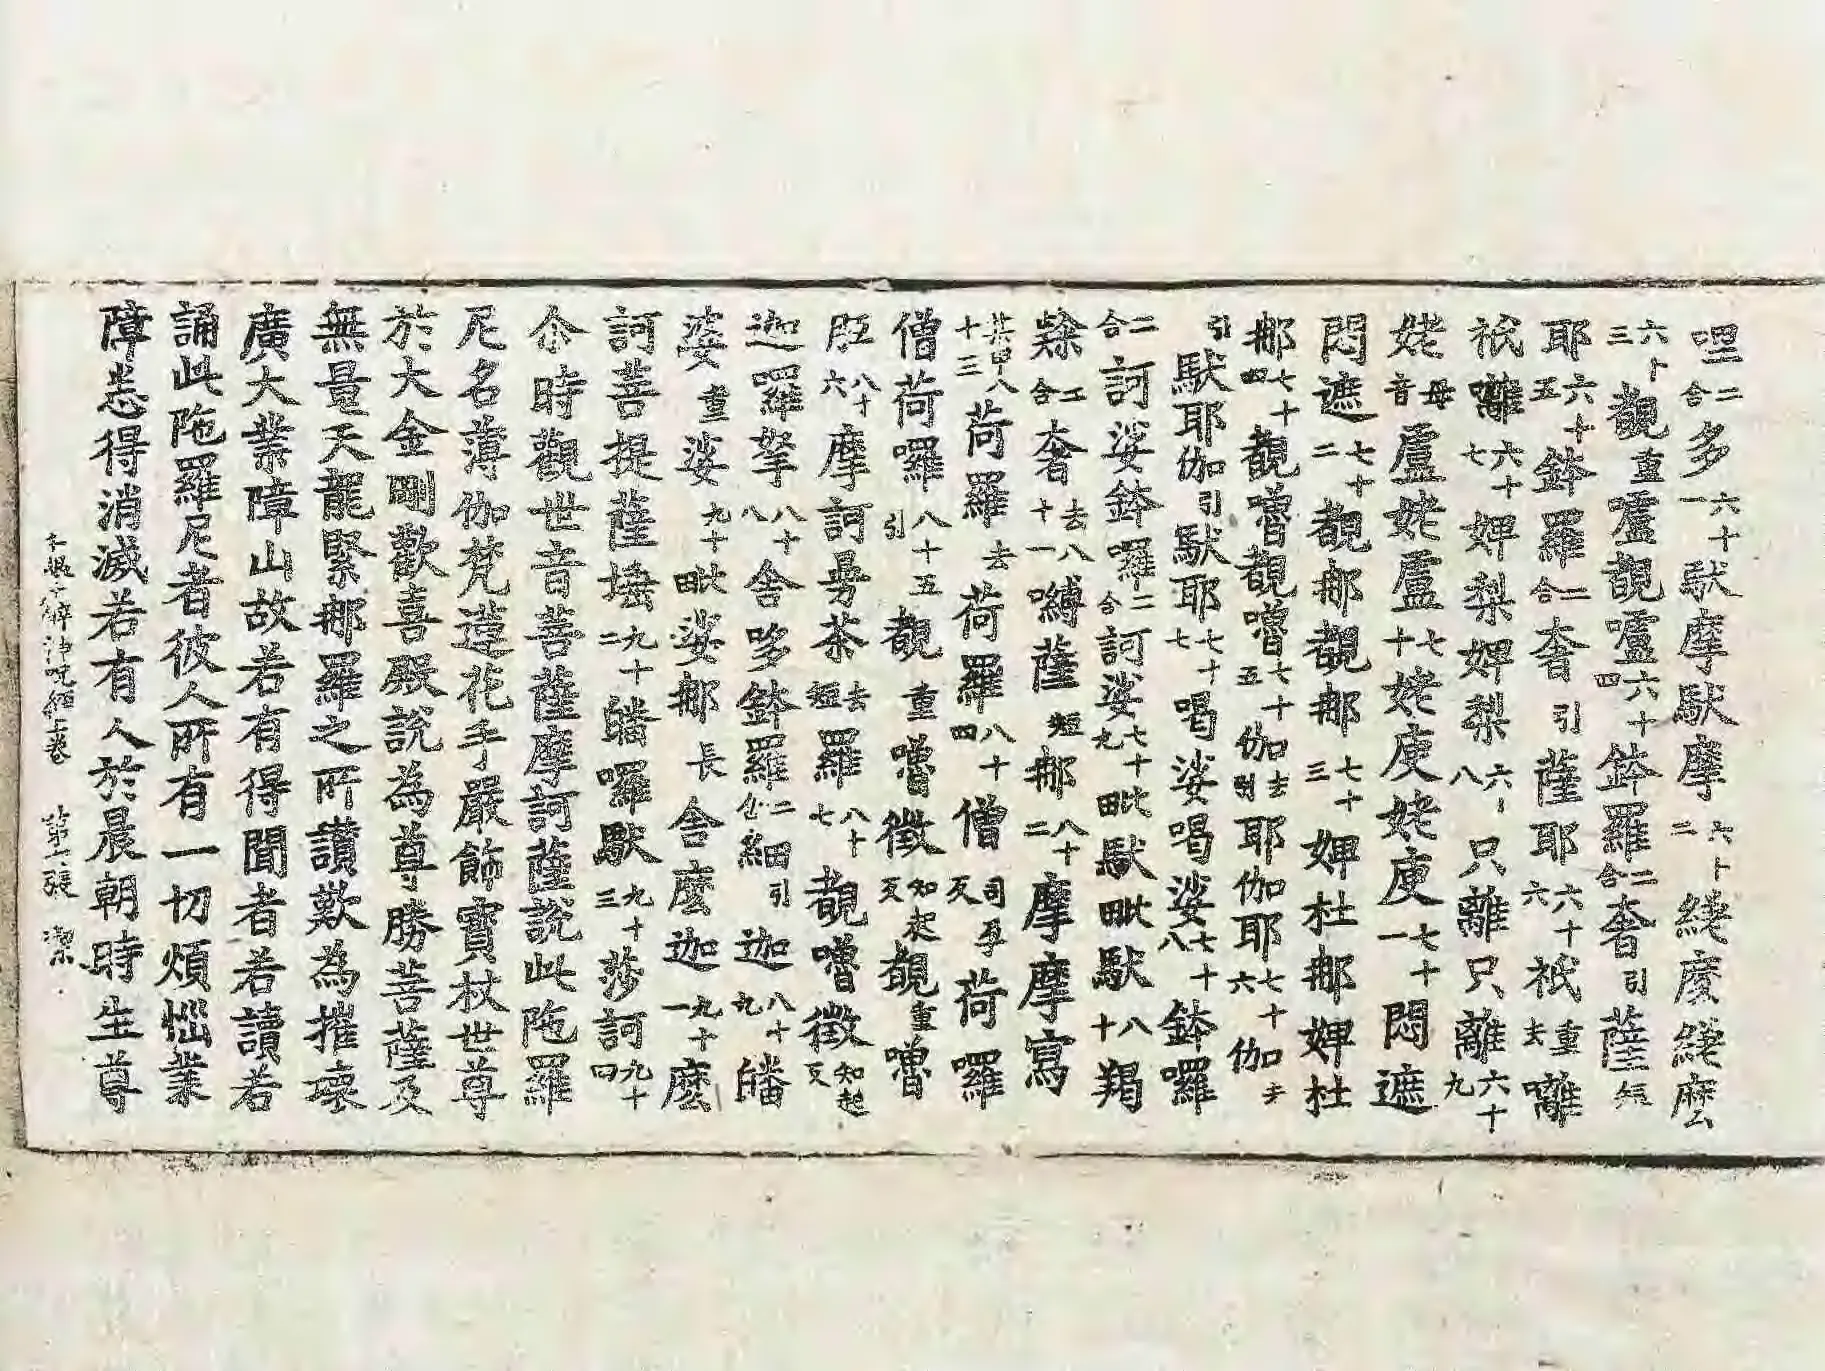 哩二合多六十一䭾摩䭾摩六十二綫麼綫麼
六十三覩重嚧覩嚧六十四鉢羅二合奢引薩短
耶六十五鉢羅二合奢引薩耶六十六祇重去囄
祇囄六十七婢梨婢梨六十八只離只離六十九
姥母音盧姥盧七十姥庾姥庾七十一悶遮
悶遮七十二覩那覩那七十三婢杜那婢杜
那七十四覩嚕覩嚕七十五伽去引耶伽耶七十六伽去
引䭾耶伽引䭾耶七十七喝娑喝娑七十八鉢囉
二合訶娑鉢囉二合訶娑七十九毗䭾毗䭾八十羯
二合奢去八十一嚩薩短那八十二摩摩寫
八十三荷羅去荷羅八十四僧反荷囉
僧荷囉引八十五覩重嚕徵知起反覩重嚕
八十六摩訶茶去短羅八十七覩嚕徵知起反
迦羅拏八十八舍哆鉢羅二合細引迦八十九皤
婆重娑九十毗婆那長舍麼迦九十一麼
訶菩提薩埵九十二皤囉䭾九十三莎訶九十四
尒時觀世音菩薩摩訶薩說此陁羅
尼名薄伽梵蓮花手嚴飾寶杖世尊
於大金剛歡喜殿說為尊勝菩薩及
無量天龍緊那羅之所讃歎為摧壞
廣大業障山故若有得聞者若讀若
誦此陁羅尼者彼人所有一切煩惱業
障悉得消滅若有人於晨朝時生尊
呪經上卷 第六張 潔